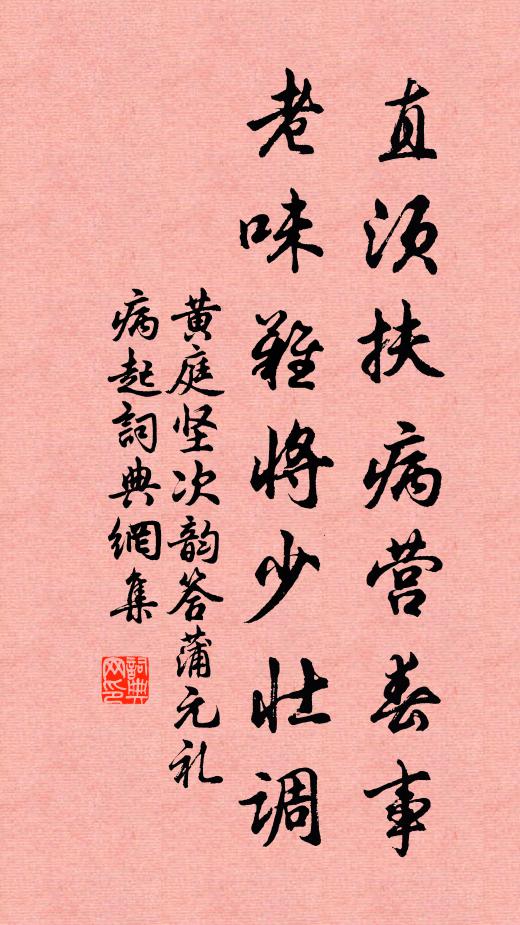 直须扶病营春事
老味難将少壮调
黄庭坚次韵答蒲元礼
病起詞典網集
詞典网印